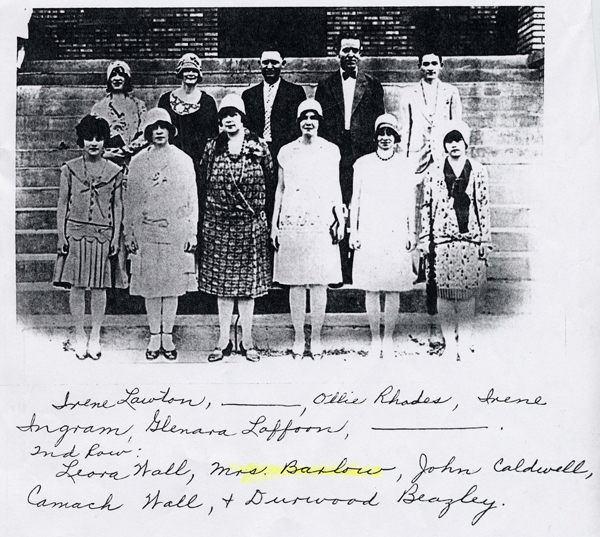 Irene Lawton, ________, Ollie Rhodes, Irene
Ingram, Glenara Laffoon, ________.
2nd Row:
Leora Wall, Mrs. Barlow, John Caldwell,
Camach Wall, & Durwood Beazley.